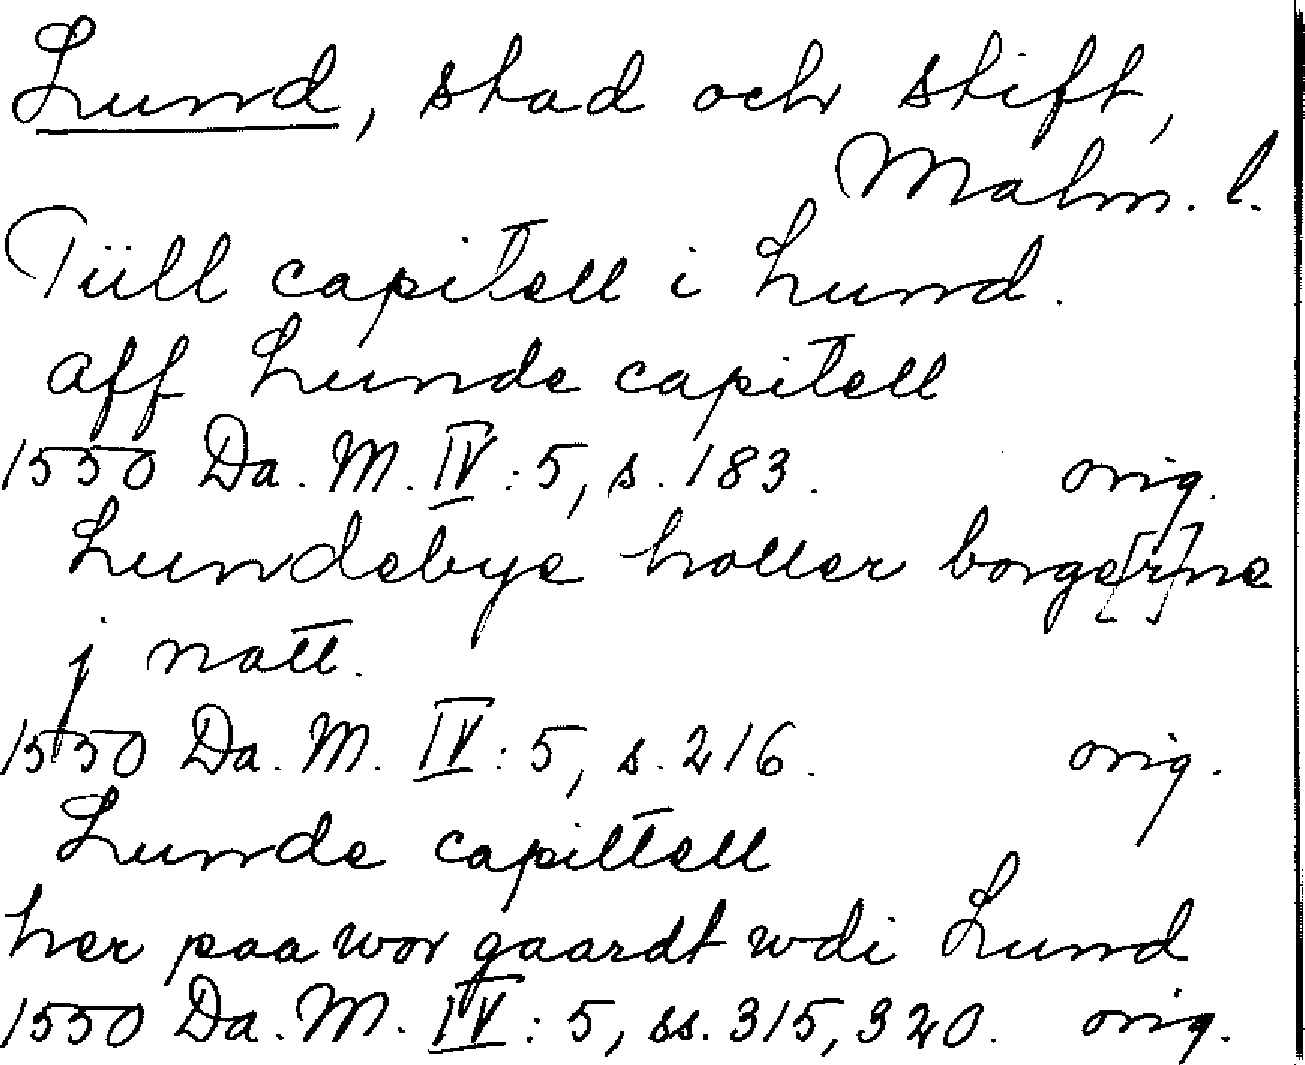 Lund, stad och stift,
Malm. l.
Tiill capitell i Lund.
aff Lunde capitell
1550 Da. M. IV: 5, s. 183. orig.
Lundebye holler borge[r]ne
j natt.
1550 Da. M. IV: 5, s. 216. orig.
Lunde capittell
her paa wor gaardt wdi Lund
1550 Da. M. IV: 5, ss. 315, 320. orig.